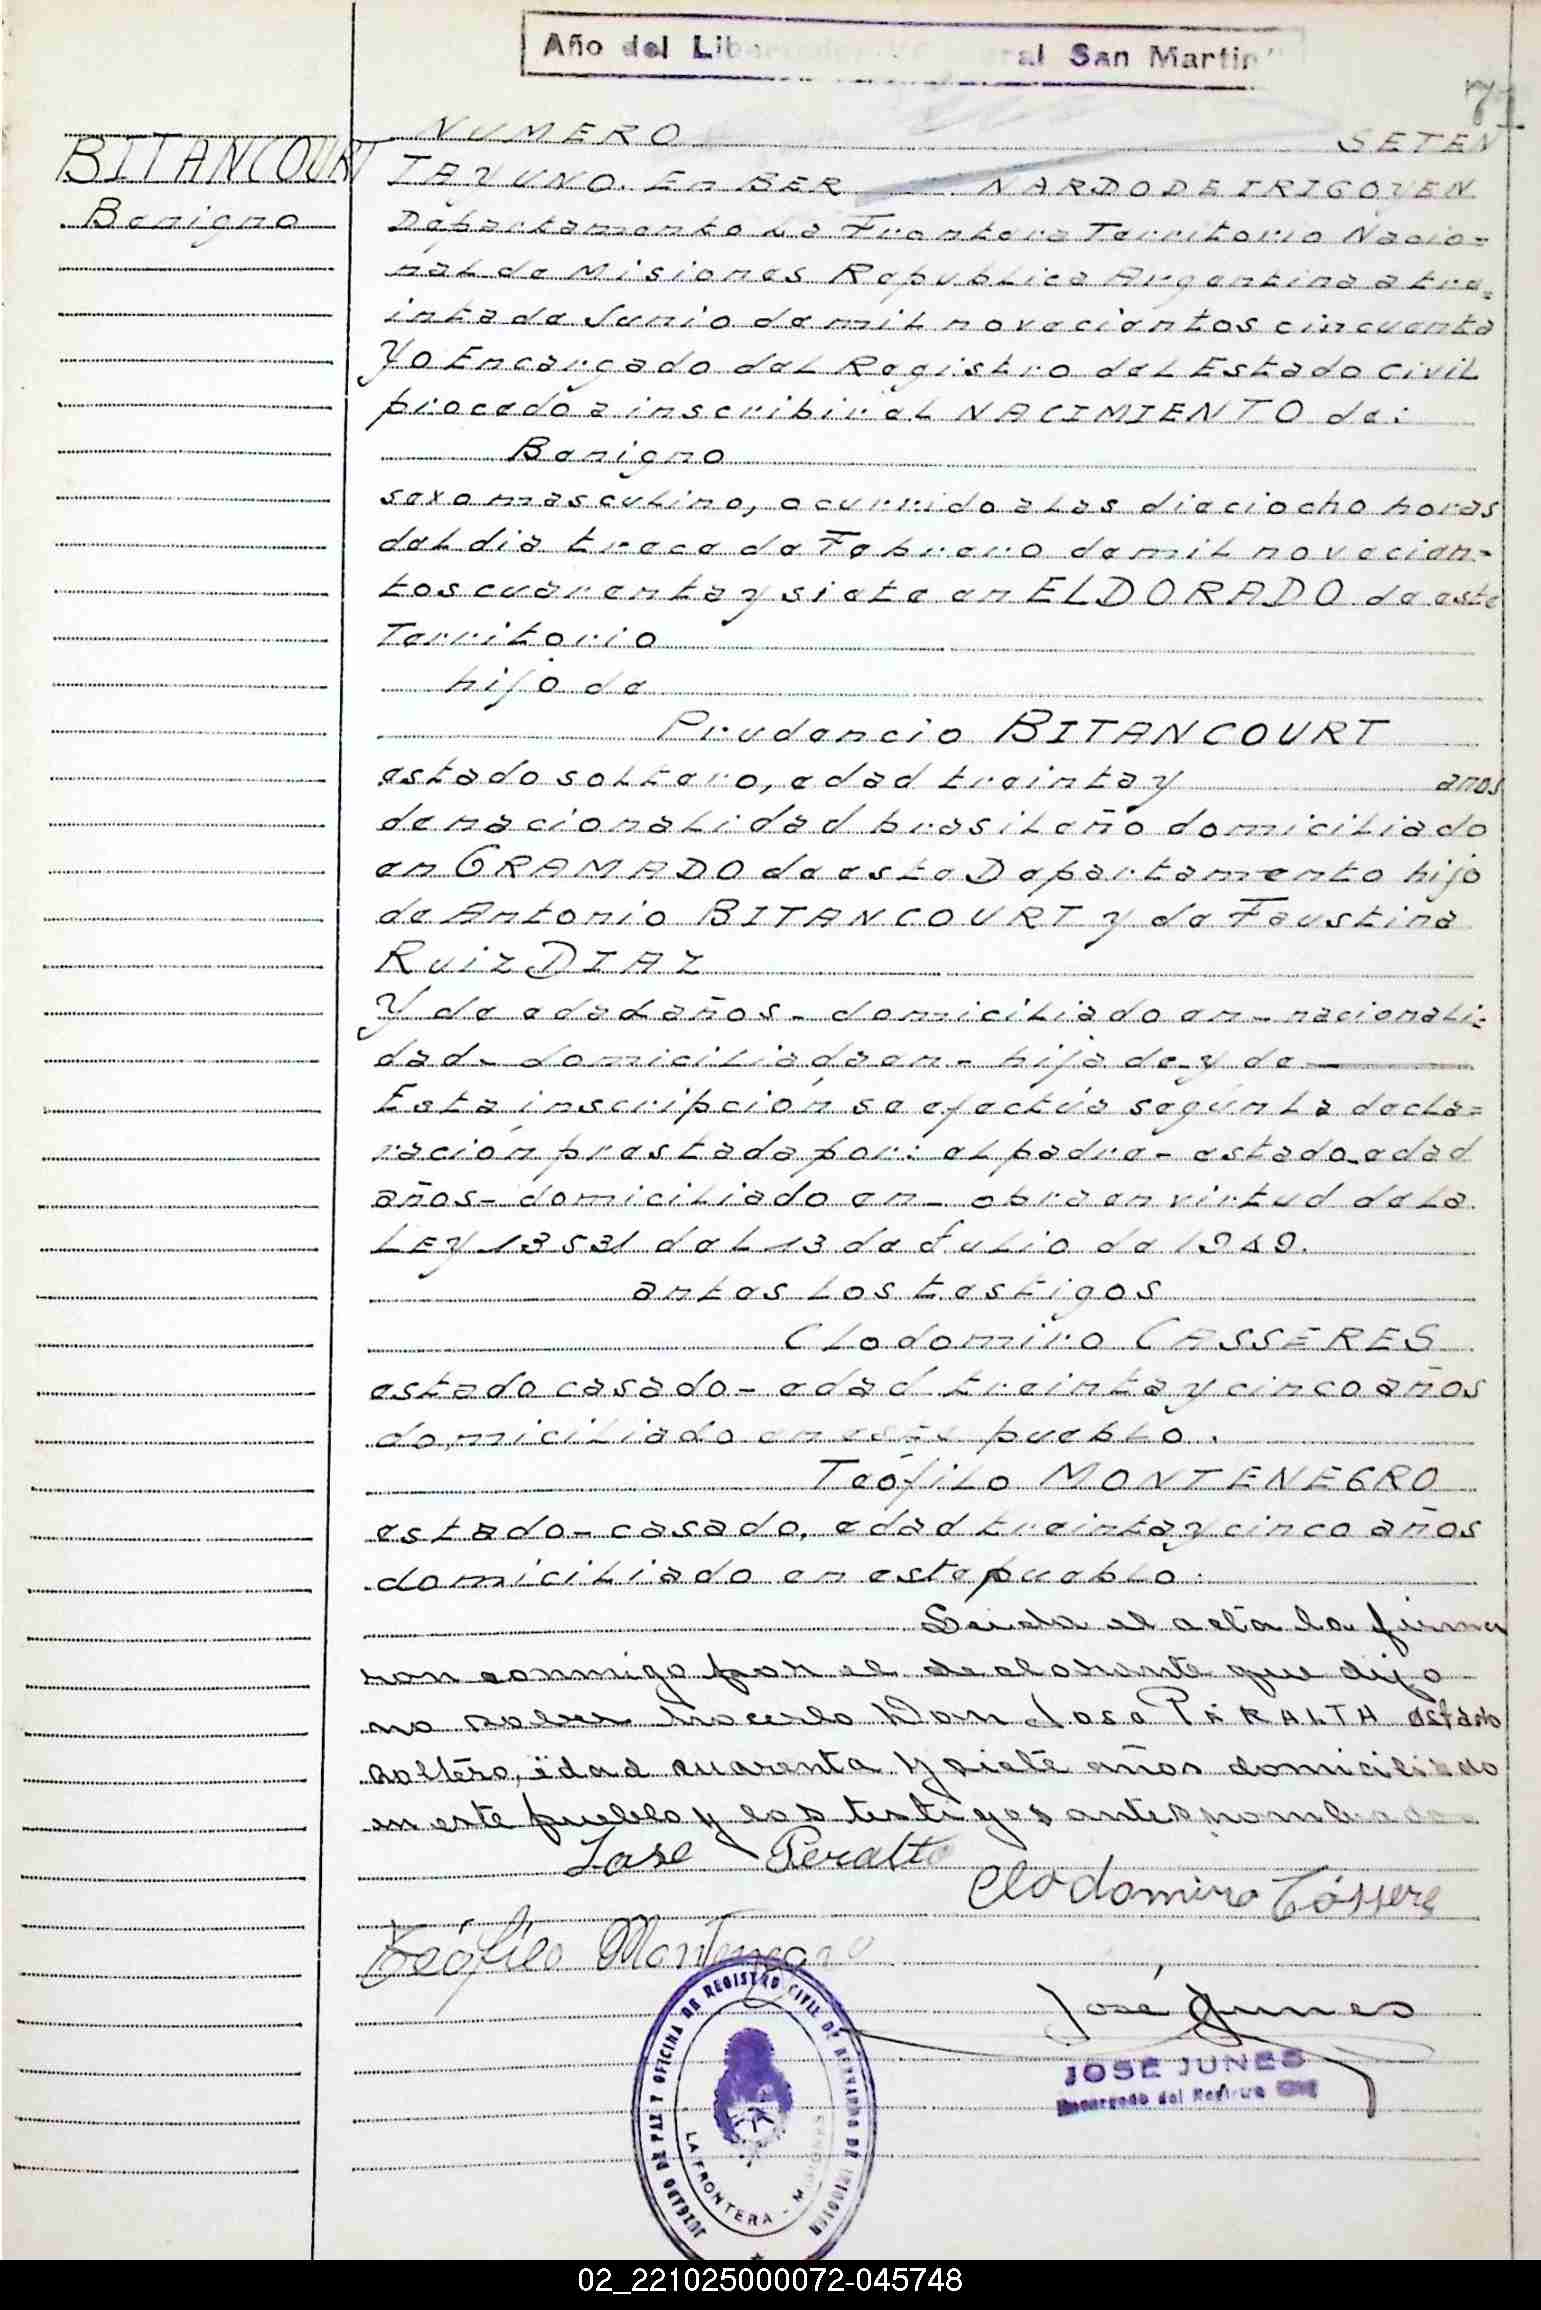 Año del Libertador General San Martin"
71
BITANCOURT
Benigno
NUMERO SETEN
TAYUNO. En BERNARDO DE IRIGOYEN
Departamento La Frontera Territorio Nacio=
nal de Misiones Republica Argentina a tre=
inta de Junio de mil novecientos cincuenta
Yo Encargado del Registro del Estado Civil
procedo a inscribir el NACIMIENTO de:
Benigno
sexo masculino, ocurrido a las dieciocho horas
del dia trece de Febrero de mil novecien-
tos cuarenta y siete en ELDORADO de este
Territorio
hijo de
Prudencio BITANCOURT
estado soltero, edad treinta y años
de nacionalidad brasileño domiciliado
en GRAMADO de este Departamento hijo
de Antonio BITANCOURT y de Faustina
Ruiz DIAZ
Y de edad años - domiciliado en - nacionali=
dad - domiciliada en - hija de - y de
Esta inscripción se efectúa según la decla=
ración prestada por: el padre - estado - edad
años - domiciliado en - obra en virtud de la
LEY 13531 del 13 de Julio de 1949.
antes los testigos
Clodomiro CASSERES
estado casado - edad treinta y cinco años
domiciliado en este pueblo.
Teófilo MONTENEGRO
estado - casado, edad treinta y cinco años
domiciliado en este pueblo.
Leida el acta la firma
ron conmigo por el declarante que dijo
no saber hacerlo Don José PERALTA estado
soltero, edad cuarenta y siete años domiciliado
en este pueblo y los testigos antes nombrados
José Peralta
Clodomiro Cásseres
Teófilo Montenegro
José Junes
JOSE JUNES
Encargado del Registro Civil
JUZGADO DE PAZ Y OFICINA DE REGISTRO CIVIL DE BERNARDO DE IRIGOYEN
LA FRONTERA - MISIONES
02_221025000072-045748